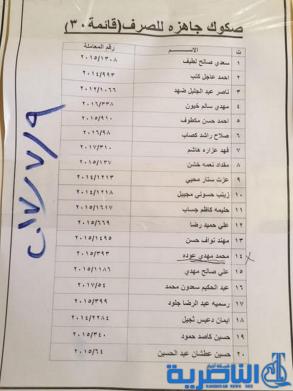 صكوك جاهزه للصرف (قائمة ٣٠)
ت الاســـــم رقم المعاملة
١ سعدي صالح لطيف ٢٠١٥/١٣٠٨
٢ احمد عاجل كتب ٢٠١٤/٩٩٣
٣ ناصر عبد الجليل ضهد ٢٠١٢/١٠٦٦
٤ مهدي سالم خيون ٢٠١٦/٣٣٨
٥ احمد حسن مكطوف ٢٠١٥/٩١٠
٦ صلاح راشد كصاب ٢٠١٦/٩٨
٧ فهد عزاره هاشم ٢٠١٧/٣١٠
٨ مقداد نعمه خشن ٢٠١٥/١٣٧
٩ عزت ستار محيي ٢٠١٤/١٢١٣
١٠ زينب حسوني مجيبل ٢٠١٤/١٢١٨
١١ حليمه كاظم جساب ٢٠١٥/١٦١٧
١٢ علي حميد رضا ٢٠١٥/٦٦٩
١٣ مهند نواف حسن ٢٠١٥/١٤٩٥
١٤ محمد مهدي عوده ٢٠١٥/٣٩٣
١٥ علي صالح مهدي ٢٠١٥/١١٨٦
١٦ عبد الحكيم سعدون محمد ٢٠١٧/٥٤
١٧ رسميه عبد الرضا جلود ٢٠١٥/٣٩٩
١٨ ايمان دعيس ثجيل ٢٠١٤/٢٢٨٤
١٩ حسين كاصد حمود ٢٠١٥/٣٤٠
٢٠ حسين عطشان عبد الحسين ٢٠١٥/٦٤
٢٠١٧/٧/٩
الناصرية